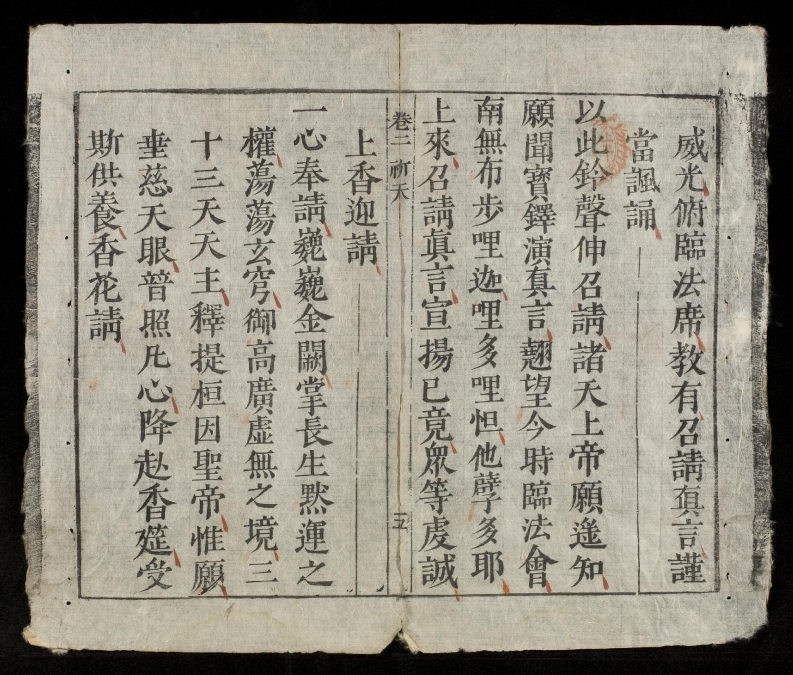 威光俯臨法席教有召請眞言謹
當諷誦
以此鈴聲伸召請諸天上帝願遙知
願聞寳鐸演眞言翹望今時臨法會
南無布步哩迦哩多哩怛他孽多耶
上來召請眞言宣揚已竟衆等虔誠
卷二 祈天 五
上香迎請
一心奉請巍巍金闕掌長生黙運之
權蕩蕩玄穹御高廣虛無之境三
十三天天主釋提桓因聖帝惟願
垂慈天眼普照凡心降赴香筵受
斯供養香花請